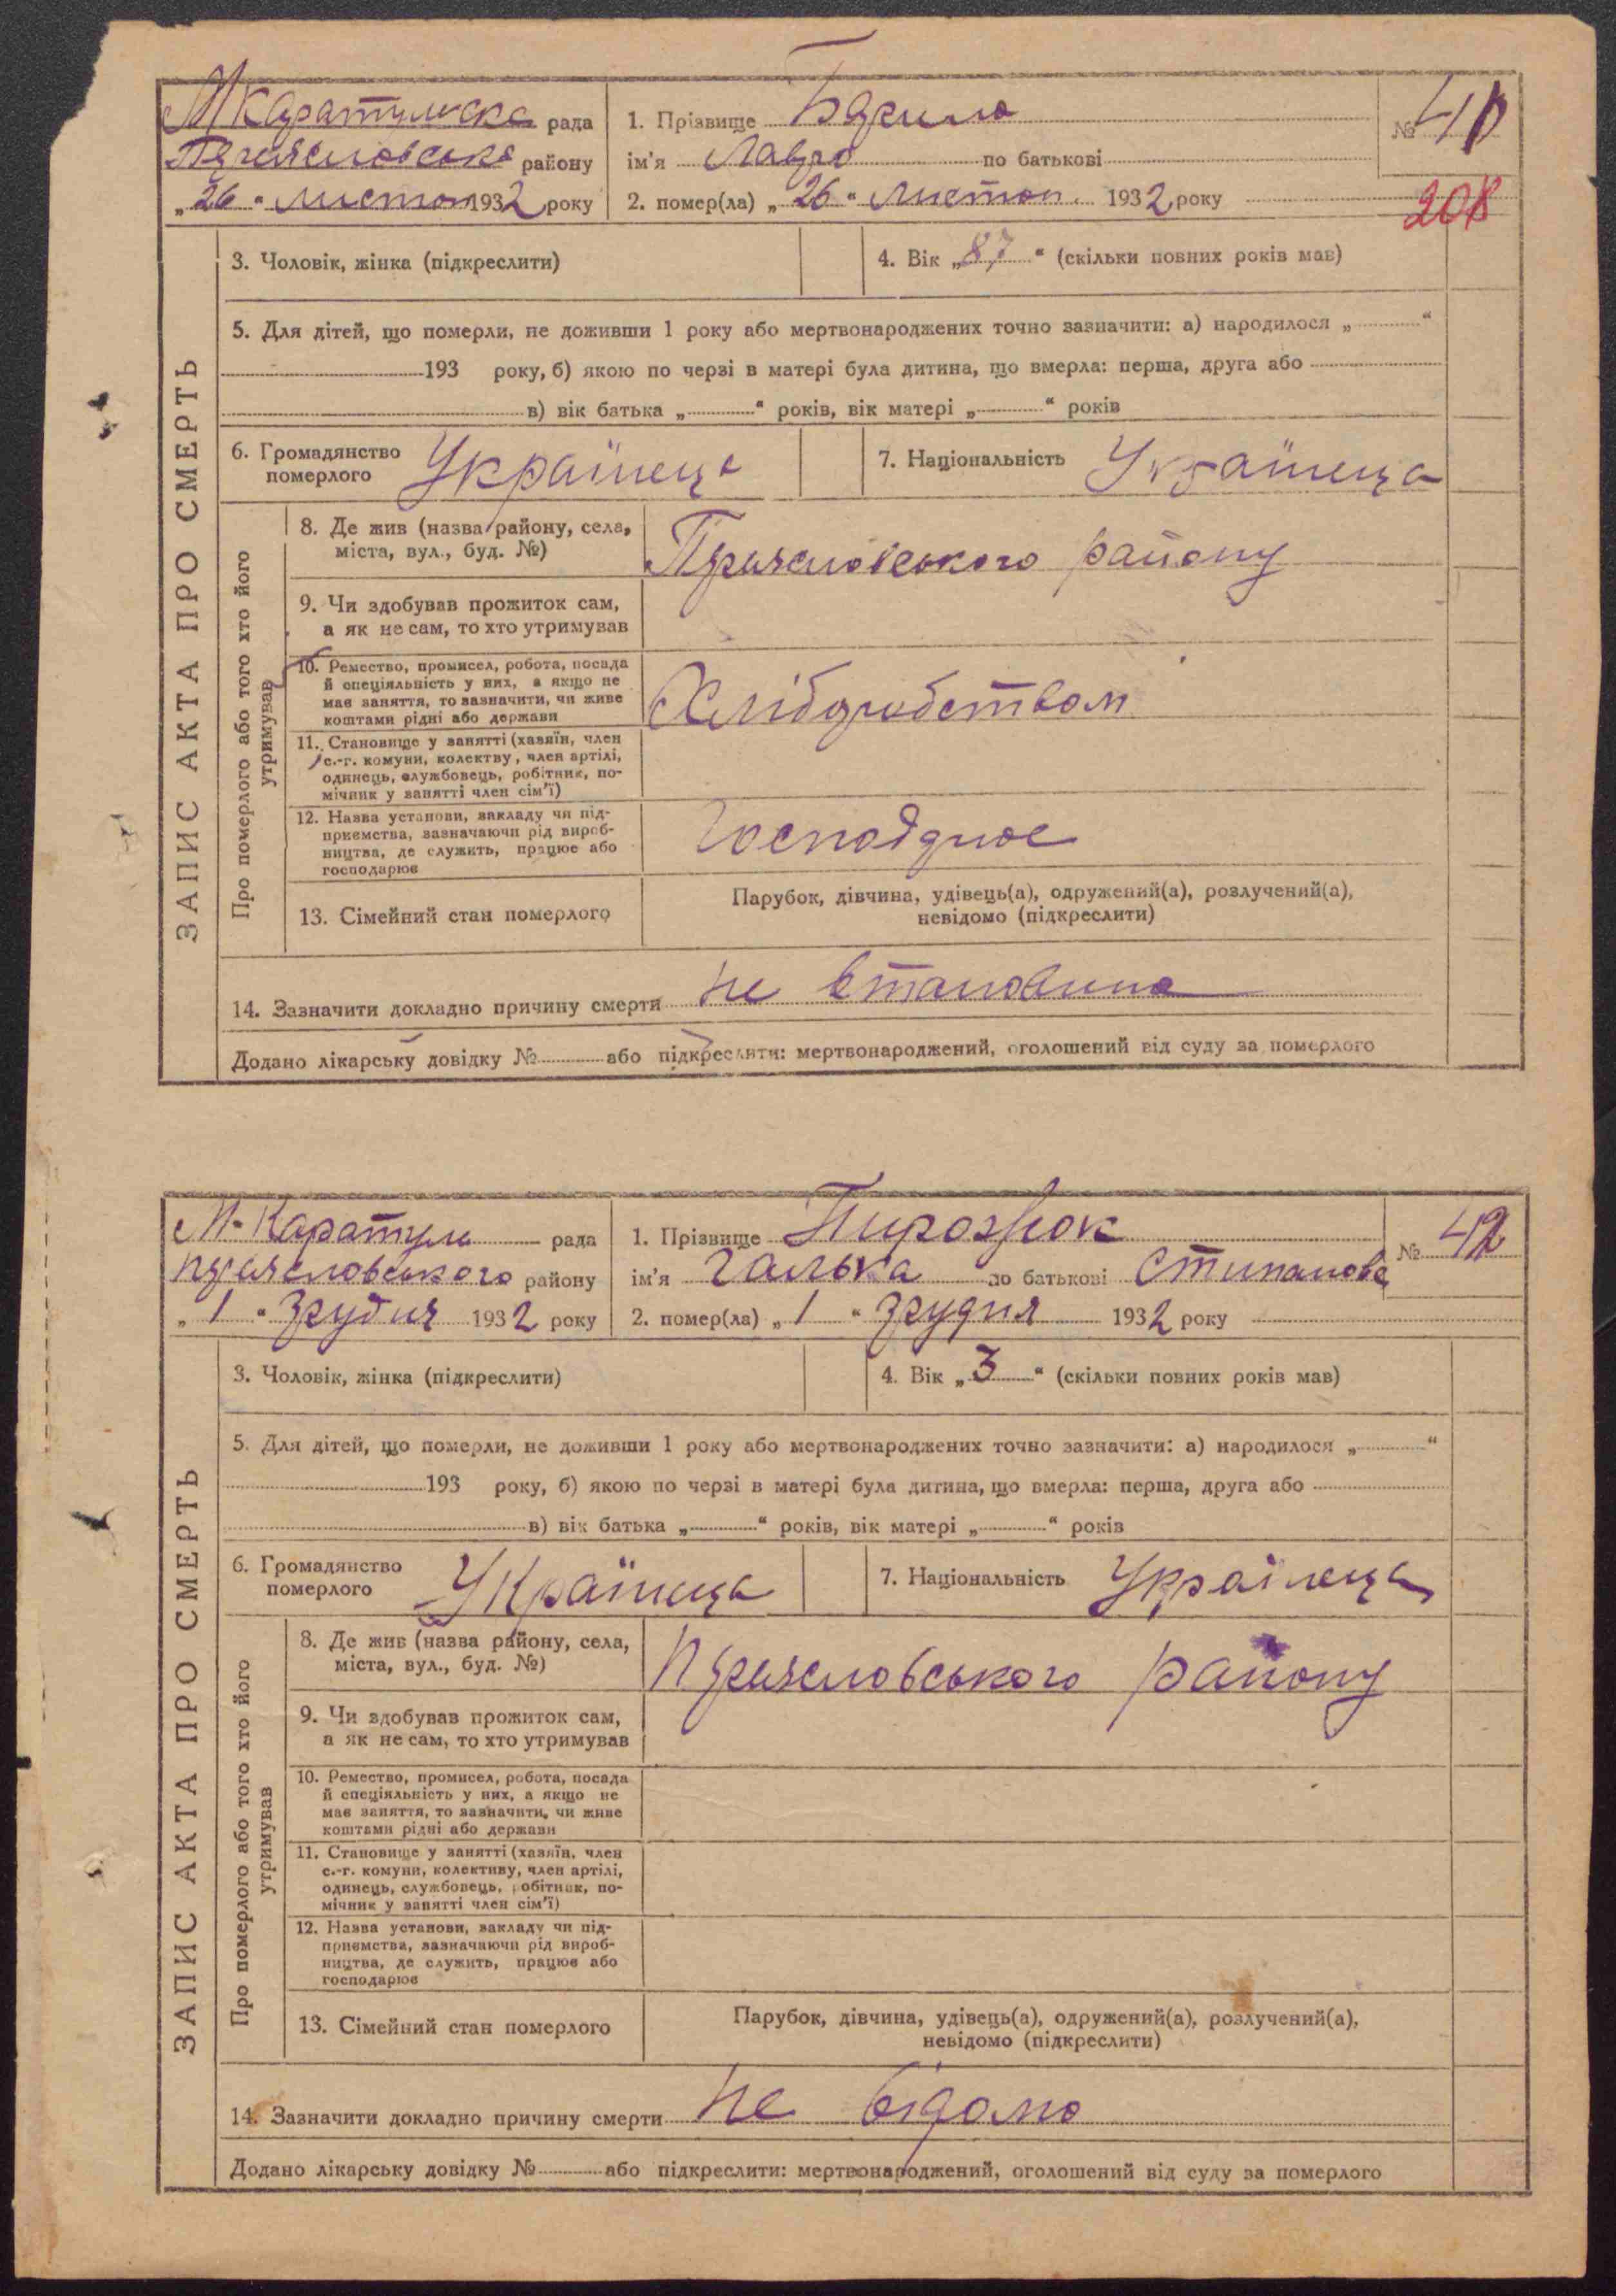 М Каратульска рада
району
„26“ листоп 1932 року
1. Прізвище
ім'я Лавро по батькові
2. помер(ла) „26“ листоп. 1932 року
№ 41
208
ЗАПИС АКТА ПРО СМЕРТЬ
3. Чоловік, жінка (підкреслити)
4. Вік „87“ (скільки повних років мав)
5. Для дітей, що померли, не доживши 1 року або мертвонароджених точно зазначити: а) народилося „ “
193 року, б) якою по черзі в матері була дитина, що вмерла: перша, друга або
в) вік батька „ “ років, вік матері „ “ років
6. Громадянство
померлого
Українець
7. Національність
Про померлого або того хто його
утримував
8. Де жив (назва району, села,
міста, вул., буд. №)
району
9. Чи здобував прожиток сам,
а як не сам, то хто утримував
10. Ремество, промисел, робота, посада
й спеціяльність у них, а якщо не
має заняття, то зазначити, чи живе
коштами рідні або держави
Хліборобством
11. Становище у занятті (хазяїн, член
с.-г. комуни, колектву, член артілі,
одинець, службовець, робітник, по-
мічник у занятті член сім'ї)
12. Назва установи, закладу чи під-
приємства, зазначаючи рід вироб-
ництва, де служить, працює або
господарює
13. Сімейний стан померлого
Парубок, дівчина, удівець(а), одружений(а), розлучений(а),
невідомо (підкреслити)
14. Зазначити докладно причину смерти не
Додано лікарську довідку № або підкреслити: мертвонароджений, оголошений від суду за померлого
М-Каратул рада
району
„1“ грудня 1932 року
1. Прізвище Пирожок
ім'я Галька по батькові Стипанова
2. помер(ла) „1“ грудня 1932 року
№ 42
ЗАПИС АКТА ПРО СМЕРТЬ
3. Чоловік, жінка (підкреслити)
4. Вік „3“ (скільки повних років мав)
5. Для дітей, що померли, не доживши 1 року або мертвонароджених точно зазначити: а) народилося „ “
193 року, б) якою по черзі в матері була дитина, що вмерла: перша, друга або
в) вік батька „ “ років, вік матері „ “ років
6. Громадянство
померлого
7. Національність
Про померлого або того хто його
утримував
8. Де жив (назва району, села,
міста, вул., буд. №)
району
9. Чи здобував прожиток сам,
а як не сам, то хто утримував
10. Ремество, промисел, робота, посада
й спеціяльність у них, а якщо не
має заняття, то зазначити, чи живе
коштами рідні або держави
11. Становище у занятті (хазяїн, член
с.-г. комуни, колективу, член артілі,
одинець, службовець, робітник, по-
мічник у занятті член сім'ї)
12. Назва установи, закладу чи під-
приємства, зазначаючи рід вироб-
ництва, де служить, працює або
господарює
13. Сімейний стан померлого
Парубок, дівчина, удівець(а), одружений(а), розлучений(а),
невідомо (підкреслити)
14. Зазначити докладно причину смерти не відомо
Додано лікарську довідку № або підкреслити: мертвонароджений, оголошений від суду за померлого